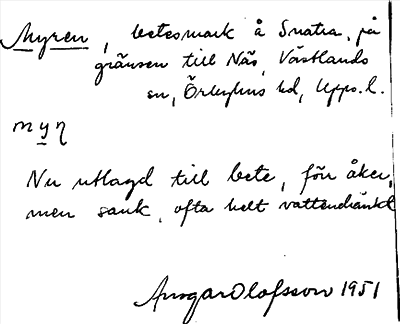 Myren, betesmark å Snatra, på
gränsen till Näs, Västlands
sn, Örbyhus hd, Upps. l.
myn
Nu utlagd till bete, förr åker,
men sank, ofta helt vattendränkt
Ansgar Olofsson 1951